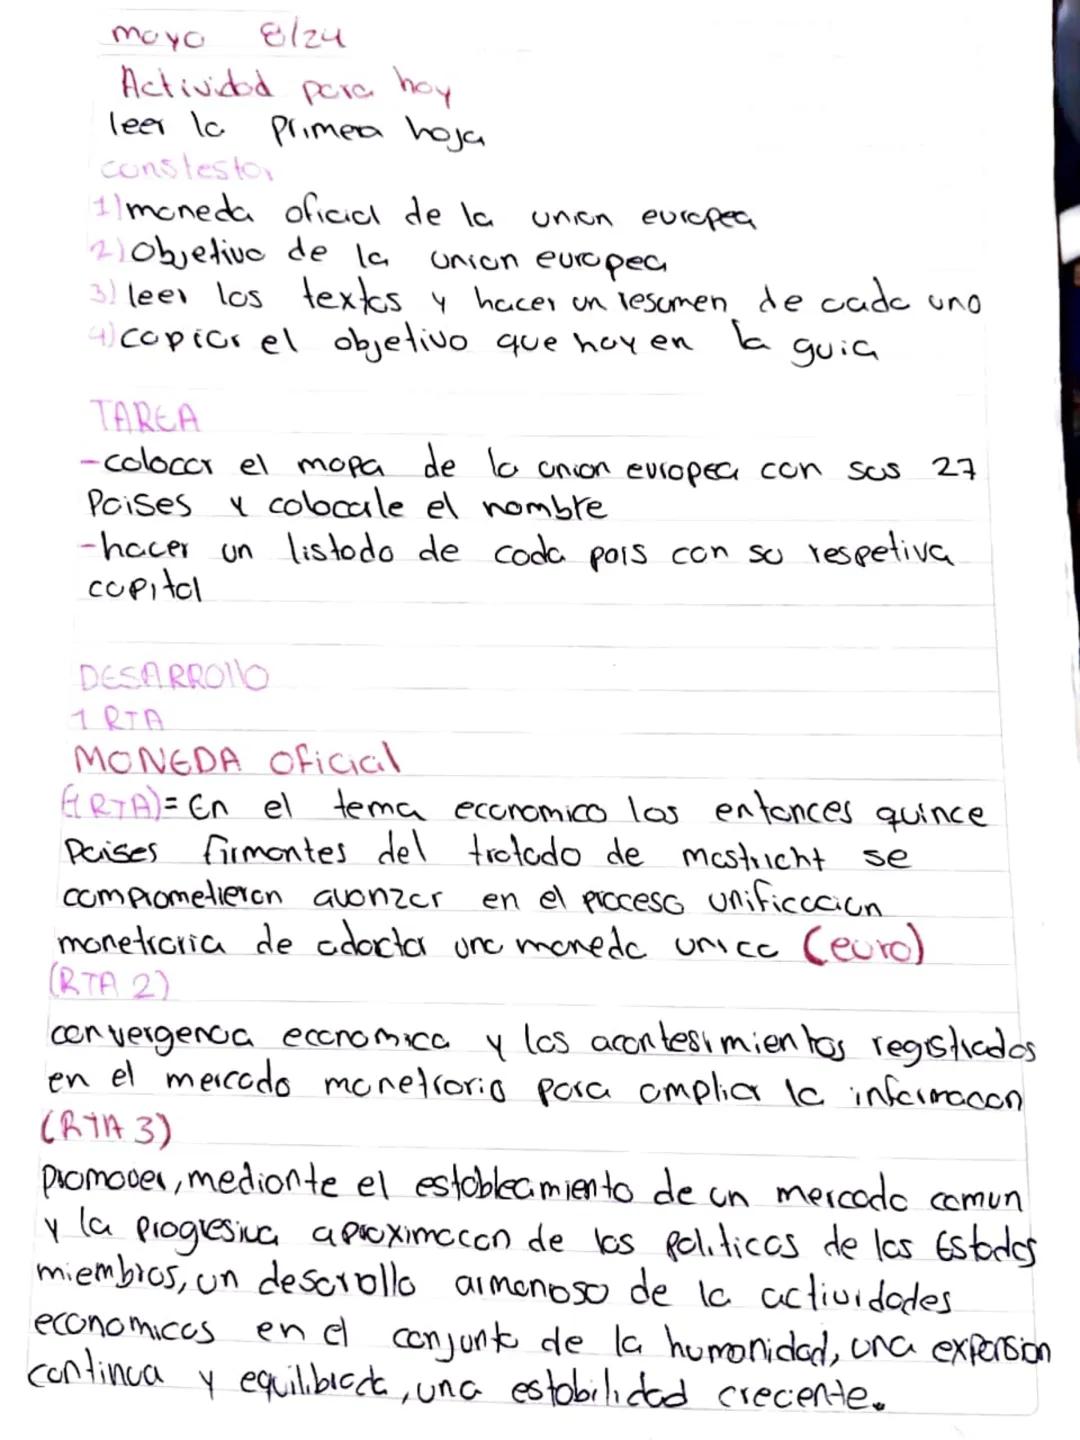 mayo 8/24
Actividad para hoy
leer la primera hoja
constestar
1) moneda oficial de la union europea
2) Objetivo de la union europea
3) leer los textos y hacer un resumen de cada uno
4) copiar el objetivo que hay en la guia
TAREA
-colocar el mapa de la union europea con sus 27
Paises y colocale el nombre
-hacer un listado de cada pais con su respetiva
capital
DESARROllO
1 RTA
MONEDA Oficial
(1 RTA)= En el tema economico los entonces quince
Paises firmantes del tratado de mastricht se
comprometieron avanzar en el proceso unificacion
monetraria de adocta una moneda unica (euro)
(RTA 2)
convergencia economica y los acontesimientos registrados
en el mercado monetrario para ampliar la informacon
(RTA 3)
promover, mediante el establecimiento de un mercado comun
y la progresiva aproximacon de las politicas de los Estados
miembros, un desarollo armonoso de la actividades
economicas en el conjunto de la humanidad, una expansion
continua y equilibrada, una estabilidad crecente.